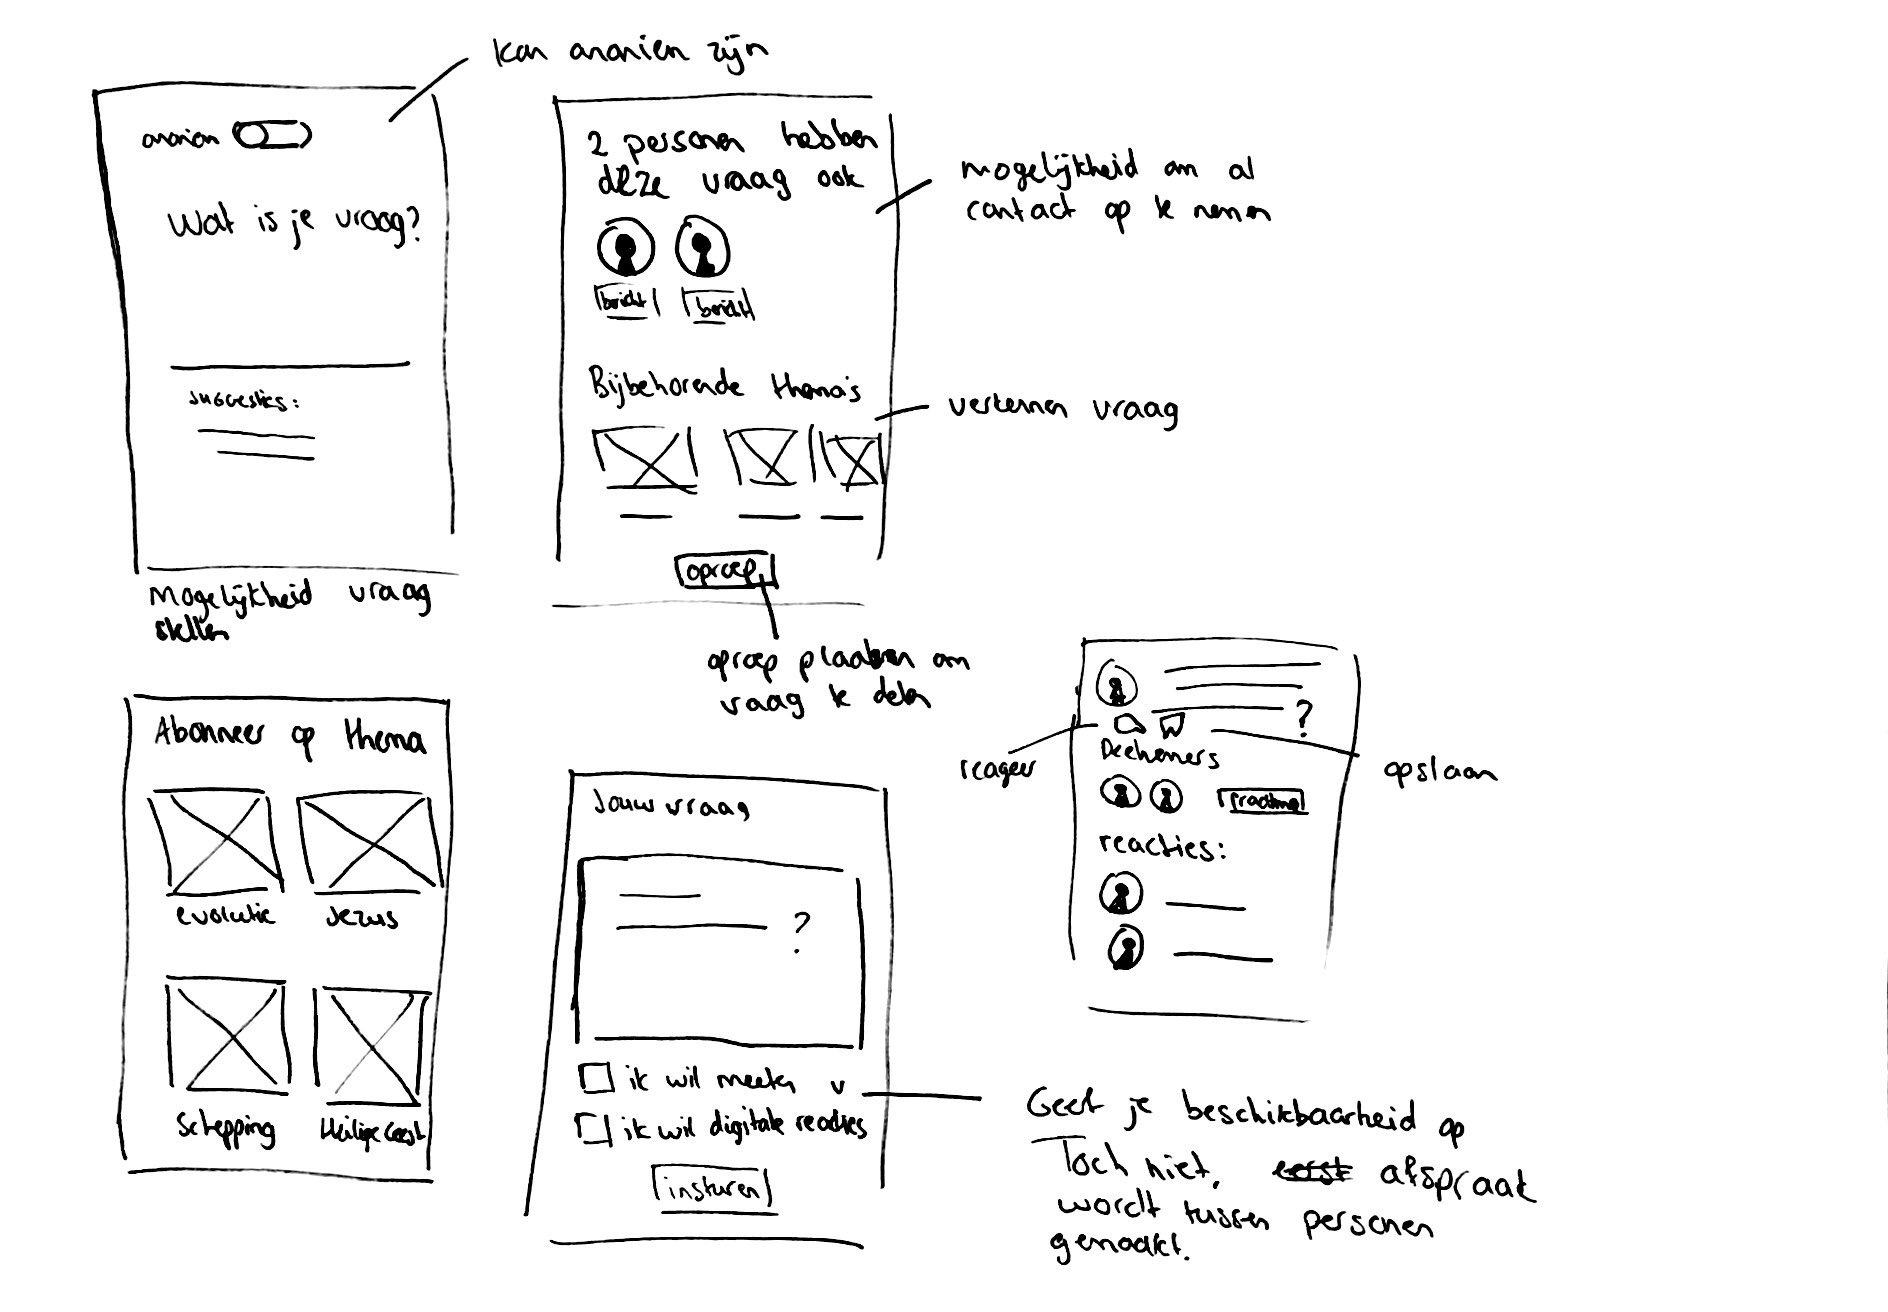 kan anoniem zijn
anoniem
Wat is je vraag?
suggesties:
Mogelijkheid vraag
stellen
2 personen hebben
deze vraag ook
bericht bericht
Bijbehorende thema's
oproep
mogelijkheid om al
contact op te nemen
verkennen vraag
oproep plaatsen om
vraag te delen
Abonneer op thema
evolutie Jezus
Schepping Heilige Geest
Jouw vraag
?
ik wil meeten v
ik wil digitale reacties
insturen
?
reageer
opslaan
Deelnemers
reacties:
Geef je beschikbaarheid op
Toch niet, eerst afspraak
wordt tussen personen
gemaakt.